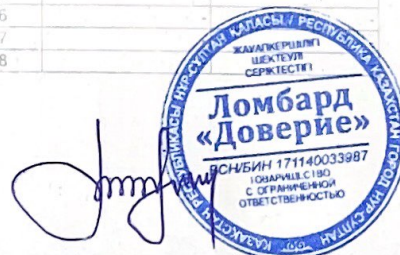 6
7
8
ҚАЗАҚСТАН РЕСПУБЛИКАСЫ НҰР-СҰЛТАН ҚАЛАСЫ / РЕСПУБЛИКА КАЗАХСТАН ГОРОД НУР-СУЛТАН
ЖАУАПКЕРШІЛІГІ
ШЕКТЕУЛІ
СЕРІКТЕСТІГІ
Ломбард
«Доверие»
БСН/БИН 171140033987
ТОВАРИЩЕСТВО
С ОГРАНИЧЕННОЙ
ОТВЕТСТВЕННОСТЬЮ